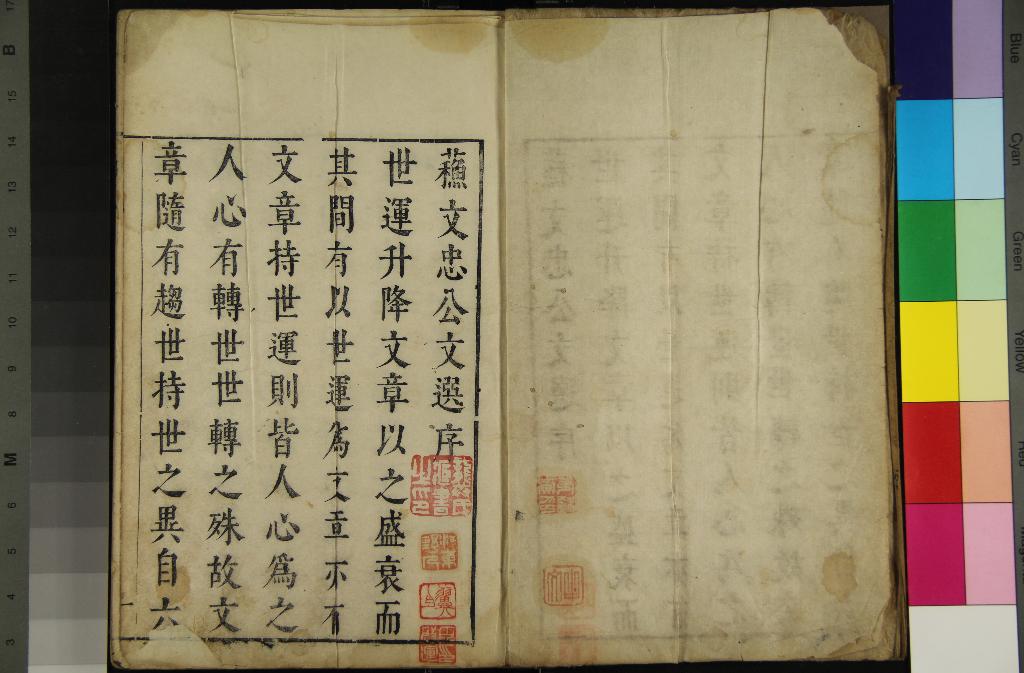 蘓文忠公文選序
世運升降文章以之盛衰而
其間有以世運為文章亦有
文章持世運則皆人心為之
人心有轉世世轉之殊故文
章隨有趨世持世之異自六
17
B
15
14
13
12
11
10
9
8
M
6
5
4
3
Blue
Cyan
Green
Yellow
Red